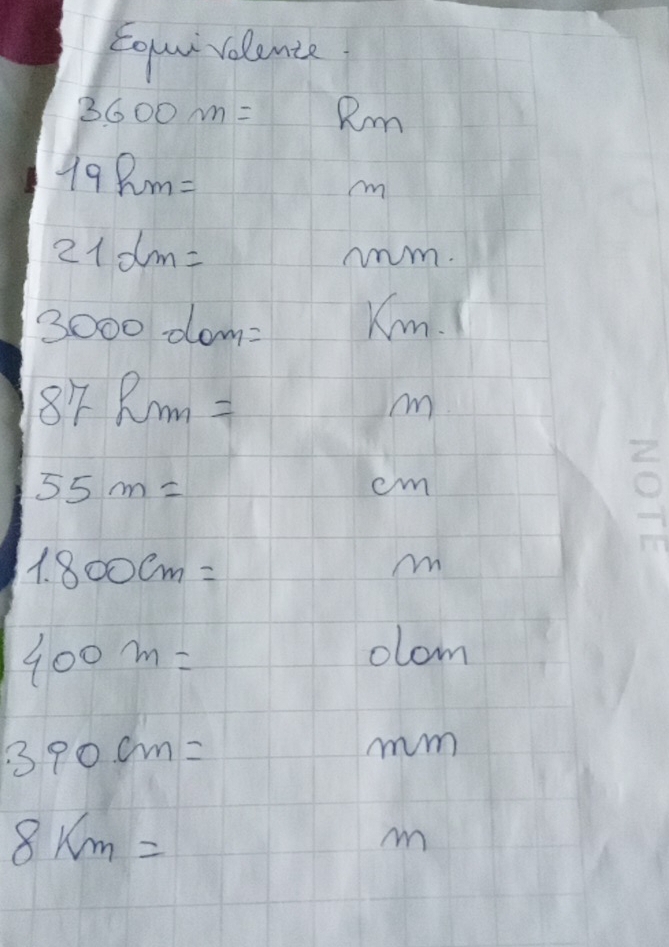 Equivalenze.
3.600 m = hm
19 hm = m
21 dm = mm.
3000 dam = Km.
87 hm = m
55 m = cm
1.800 cm = m
400 m = dam
390 cm = mm
8 Km = m
NOTE